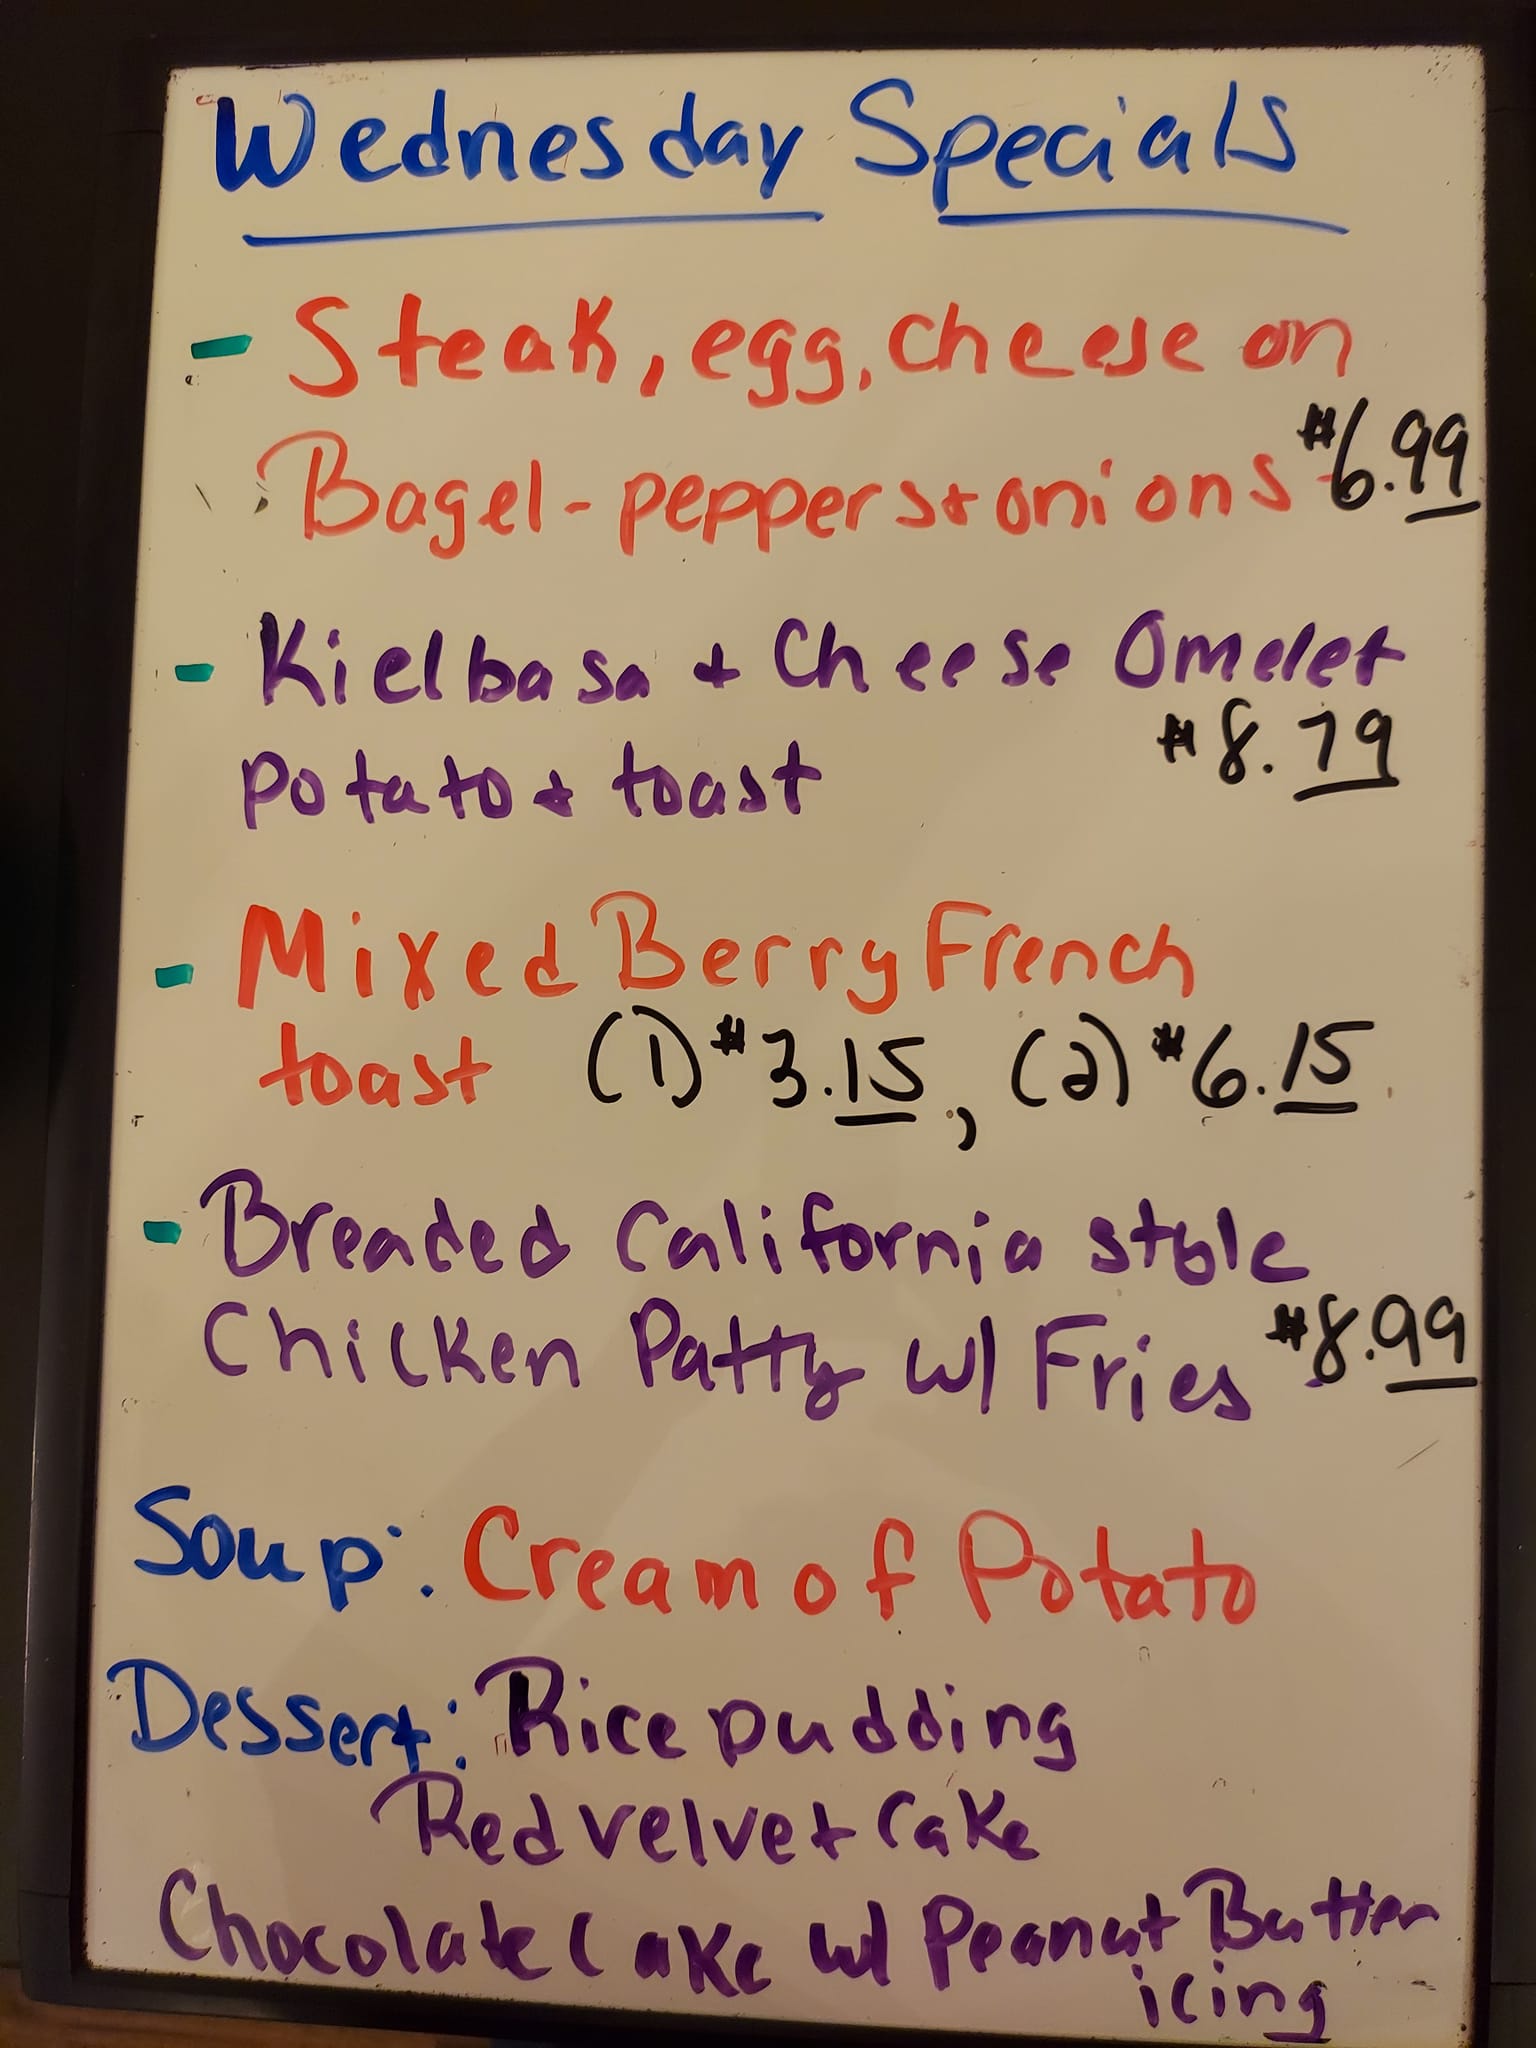 Wednesday Specials
- Steak, egg, cheese on
Bagel - peppers + onions $6.99
- Kielbasa + Cheese Omelet
potato + toast $8.79
- Mixed Berry French
toast (1) $3.15, (2) $6.15
- Breaded California style
Chicken Patty w/ Fries $8.99
Soup: Cream of Potato
Dessert: Rice pudding
Red velvet Cake
Chocolate Cake w/ Peanut Butter
icing